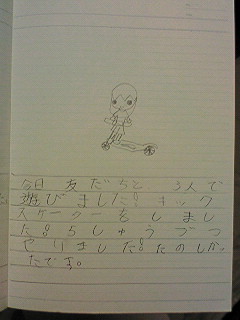 今日 友だちと 3人で
遊びました!キック
スケーターをしまし
た!1しゅうづつ
やりました!たのしか
たです。